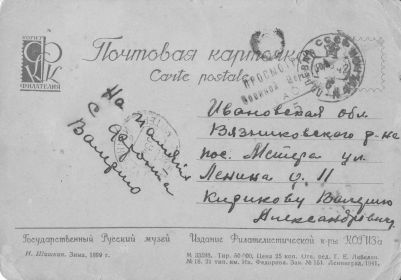 КОГИЗ
ФИЛАТЕЛИЯ
Почтовая карточка
Carte postale
ПРОСМОТРЕНО
Военной
СССР
На память
с фронта
Валерию
Ивановская обл.
Вязниковского р-на
пос. Мстера ул.
Ленина д. 11
Кидикову Валерию
Александровичу.
Государственный Русский музей Издание Филателистической к-ры КОГИЗа
И. Шишкин. Зима, 1890 г.
М 33205. Тир. 50 000. Цена 25 коп. Отв. ред. Г. Е. Лебедев.
№ 18. 2‑я тип. им. Ив. Федорова. Зак. № 151. Ленинград, 1941.